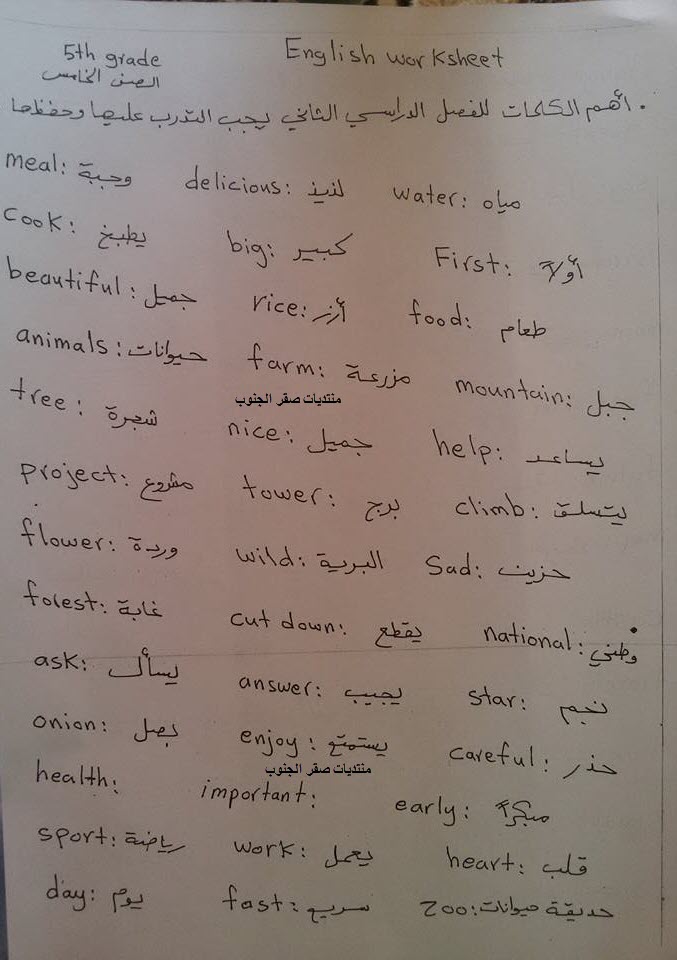 5th grade English worksheet
الصف الخامس
. أهم الكلمات للفصل الدراسي الثاني يجب التدرب عليها وحفظها
meal: وجبة delicious: لذيذ water: مياه
cook: يطبخ big: كبير First: أولاً
beautiful: جميل rice: أرز food: طعام
animals: حيوانات farm: مزرعة mountain: جبل
منتديات صقر الجنوب
tree: شجرة nice: جميل help: يساعد
project: مشروع tower: برج climb: يتسلق
flower: وردة wild: البرية Sad: حزين
forest: غابة cut down: يقطع national: وطني
ask: يسأل answer: يجيب star: نجم
onion: بصل enjoy: يستمتع careful: حذر
منتديات صقر الجنوب
health: important: early: مبكراً
sport: رياضة work: يعمل heart: قلب
day: يوم fast: سريع zoo: حديقة حيوانات